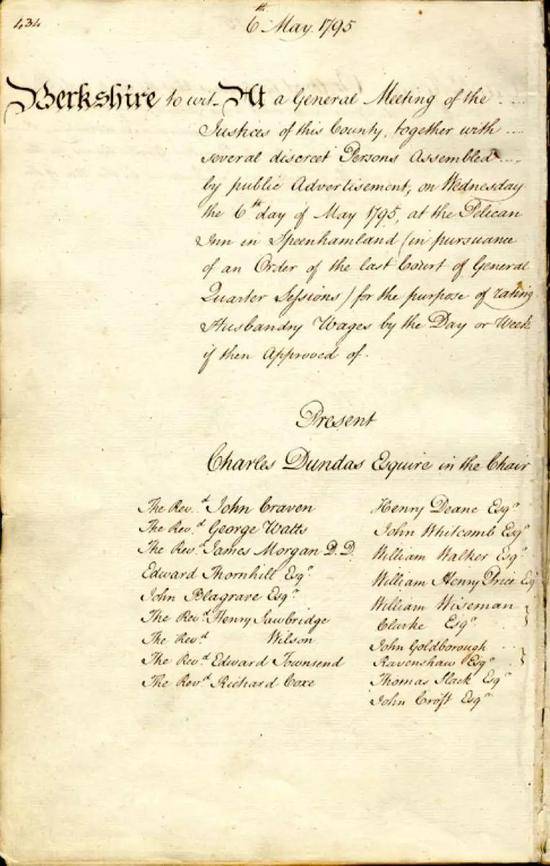 434
6th May. 1795
Berkshire to wit - At a General Meeting of the ....
Justices of this County, together with ....
several discreet Persons Assembled ....
by public Advertisement, on Wednesday
the 6th day of May 1795, at the Pelican
Inn in Speenhamland (in pursuance
of an Order of the last Court of General
Quarter Sessions) for the purpose of rating
Husbandry Wages by the Day or Week
if then Approved of.
Present
Charles Dundas Esquire in the Chair
The Rev.d John Craven
The Rev.d George Watts
The Rev.d James Morgan D.D.
Edward Thornhill Esqr.
John Blagrave Esqr.
The Revd. Henry Sawbridge
The Revd Wilson
The Revd Edward Townsend
The Revd Richard Coxe
Henry Deane Esqr
John Whitcomb Esqr
William Walker Esqr
William Henry Price Esqr
William Wiseman
Clarke Esqr
John Goldborough
Ravenshaw Esqr
Thomas Slack Esqr
John Croft Esqr